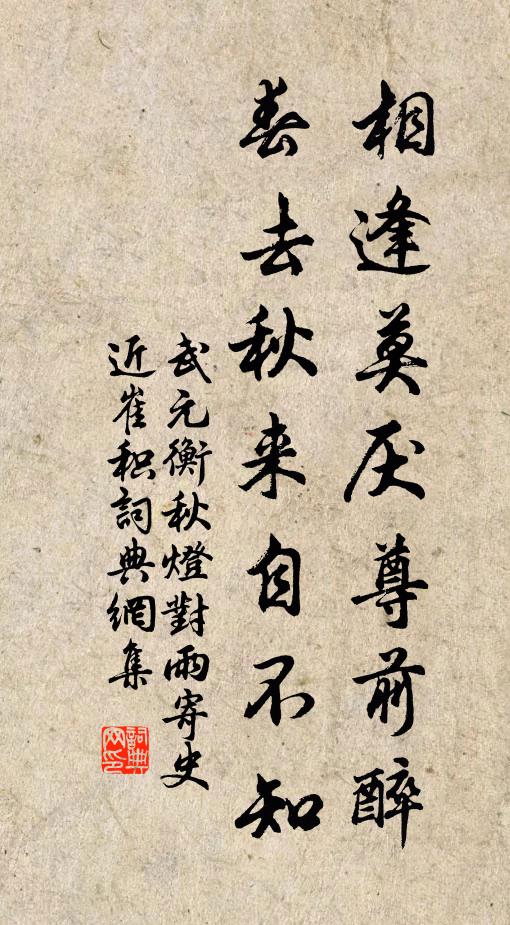 相逢莫厌尊前醉
春去秋来自不知
武元衡秋燈對雨寄史
近崔积詞典網集
詞典
网印